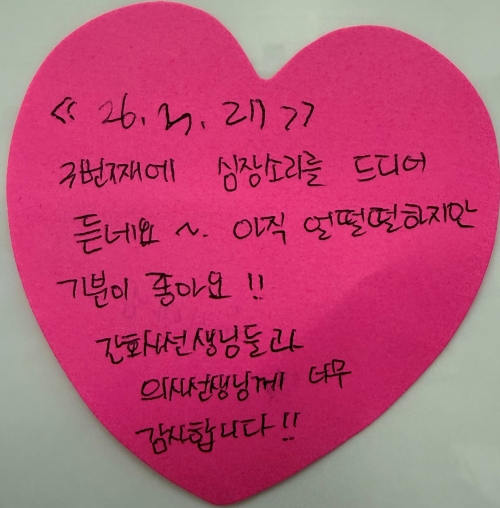 《 26. 3. 27 》
3번째에 심장소리를 드디어
듣네요 ~. 아직 얼떨떨하지만
기분이 좋아요 !!
간호사선생님들과
의사선생님께 너무
감사합니다 !!